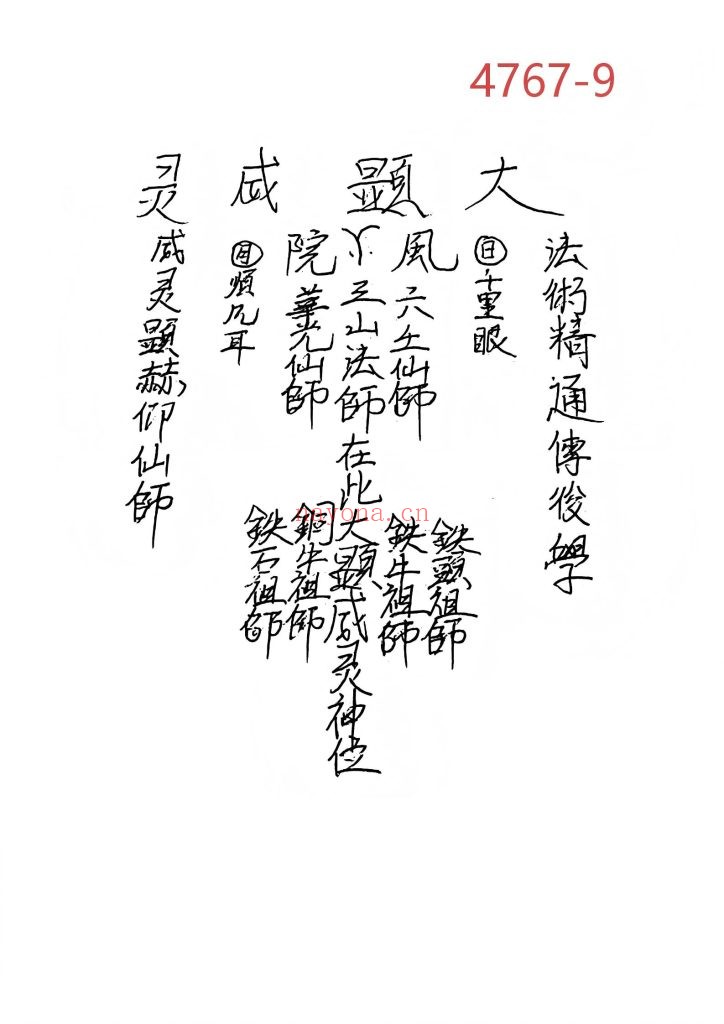 4767-9
大顕威灵
法術精通傳後學
千里眼
風六壬仙師
丫三山法師在此大顕威灵神位
院華光仙師
順风耳
鉄頭祖師
鉄牛祖師
銅牛祖師
鉄石祖師
威灵顕赫仰仙師
nayona.cn